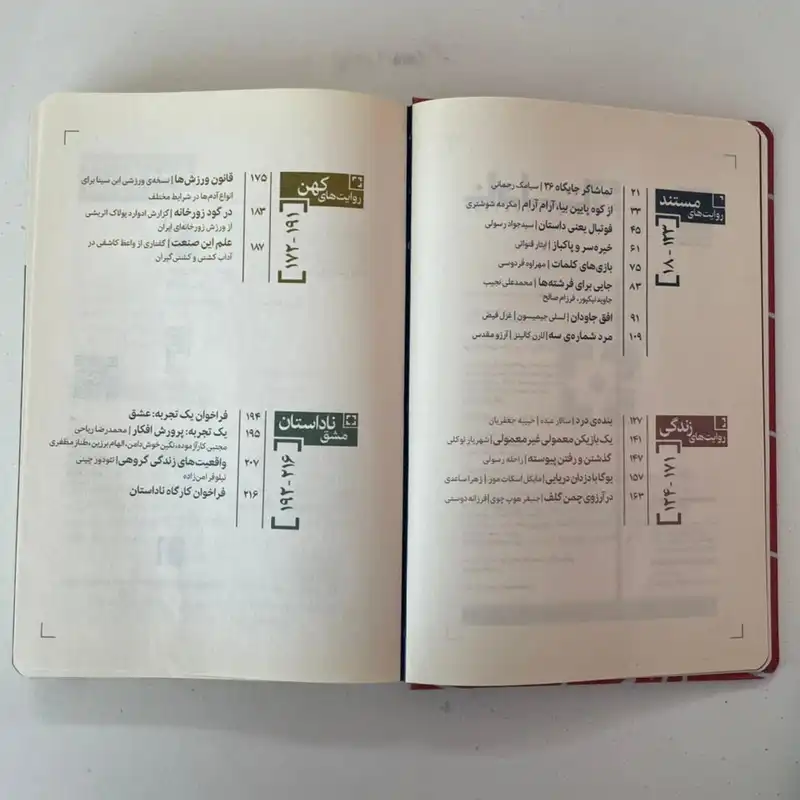 روایت‌های مستند
[۱۸-۱۲۳]
۲۱ تماشاگر جایگاه ۳۶ | سیامک رحمانی
۳۳ از کوه پایین بیا، آرام آرام | مکرمه شوشتری
۴۵ فوتبال یعنی داستان | سیدجواد رسولی
۶۱ خیره‌سر و پاکباز | ایثار قنواتی
۷۵ بازی‌های کلمات | مهراوه فردوسی
۸۳ جایی برای فرشته‌ها | محمدعلی نجیب
جاوید نیکپور، فرزام صالح
۹۱ افق جاودان | لسلی جیمیسون | غزل فیض
۱۰۹ مرد شماره‌ی سه | لارن کالینز | آرزو مقدس
روایت‌های زندگی
[۱۲۴-۱۷۱]
۱۲۷ بنده‌ی درد | سالار عبده | حبیبه جعفریان
۱۴۱ یک بازیکن معمولی غیر معمولی | شهریار توکلی
۱۴۷ گذشتن و رفتن پیوسته | راحله رسولی
۱۵۷ یوگا با دزدان دریایی | مایکل اسکات مور | زهرا ساعدی
۱۶۳ در آرزوی چمن گلف | جنیفر هوپ چوی | فرزانه دوستی
روایت‌های کهن
[۱۷۲-۱۹۱]
۱۷۵ قانون ورزش‌ها | نسخه‌ی ورزشی ابن سینا برای
انواع آدم‌ها در شرایط مختلف
۱۸۳ در گود زورخانه | گزارش ادوارد پولاک اتریشی
از ورزش زورخانه‌ای ایران
۱۸۷ علم این صنعت | گفتاری از واعظ کاشفی در
آداب کشتی و کشتی‌گیران
مشق ناداستان
[۱۹۲-۲۱۶]
۱۹۴ فراخوان یک تجربه: عشق
۱۹۵ یک تجربه: پرورش افکار | محمدرضا ریاحی
مجتبین کارآزموده، نگین خوش‌دامن، الهام برزین، طناز مظفری
۲۰۷ واقعیت‌های زندگی گروهی | تئودور چینی
نیلوفر امن‌زاده
۲۱۶ فراخوان کارگاه ناداستان